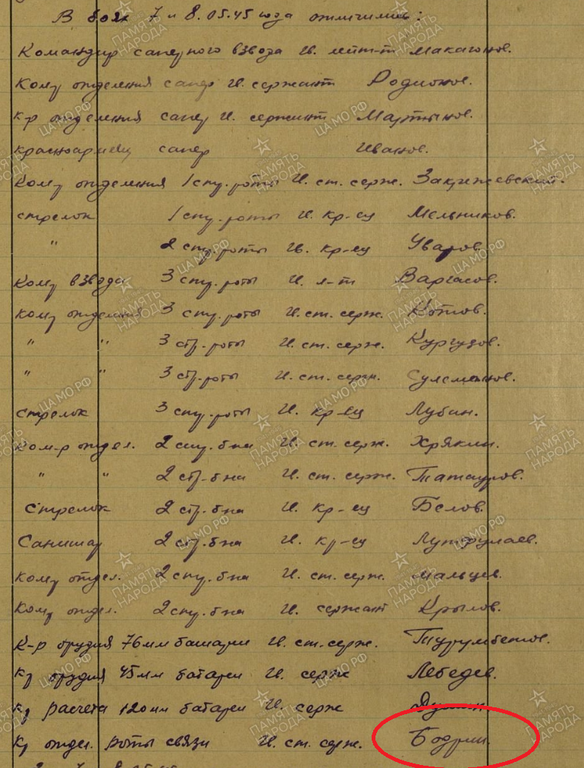 В боях 7 и 8.05.45 года отличились:
Командир саперного взвода Гв. лейт-т Макагонов.
Кому отделения сапер Гв. сержант Родионов.
К-р отделения сапер Гв. сержант Мартынов.
Красноармеец сапер Иванов.
Кому отделения 1 стр. роты Гв. ст. серж. Закржевский.
стрелок 1 стр. роты Гв. кр-ец Мельников.
" 2 стр. роты Гв. кр-ец Уваров
Кому взвода 3 стр. роты Гв. л-т Варгасов.
Кому отделения 3 стр. роты Гв. ст. серж. Котлов.
" " 3 стр. роты Гв. ст. серж. Кургузов.
" " 3 стр. роты Гв. ст. серж. Сулейманов.
стрелок 3 стр. роты Гв. кр-ец Лубин.
Ком-р отдел. 2 стр. б-на Гв. ст. серж. Хрякин.
" " 2 стр. б-на Гв. ст. серж. Татауров.
Стрелок 2 стр. б-на Гв. кр-ец Белов.
Санитар 2 стр. б-на Гв. кр-ец Лутфулаев.
Кому отдел. 2 стр. б-на Гв. ст. серж. Мальцев.
Кому отдел. 2 стр. б-на Гв. сержант Крылов.
К-р орудия 76 мм батареи Гв. ст. серж. Турумбетов.
Кр орудия 45 мм батареи Гв. серж Лебедев.
Кр расчета 120 мм батареи Гв. серж
Кр отдел. роты связи Гв. ст. серж. Бодрин.
ПАМЯТЬ НАРОДА
ЦАМО.РФ